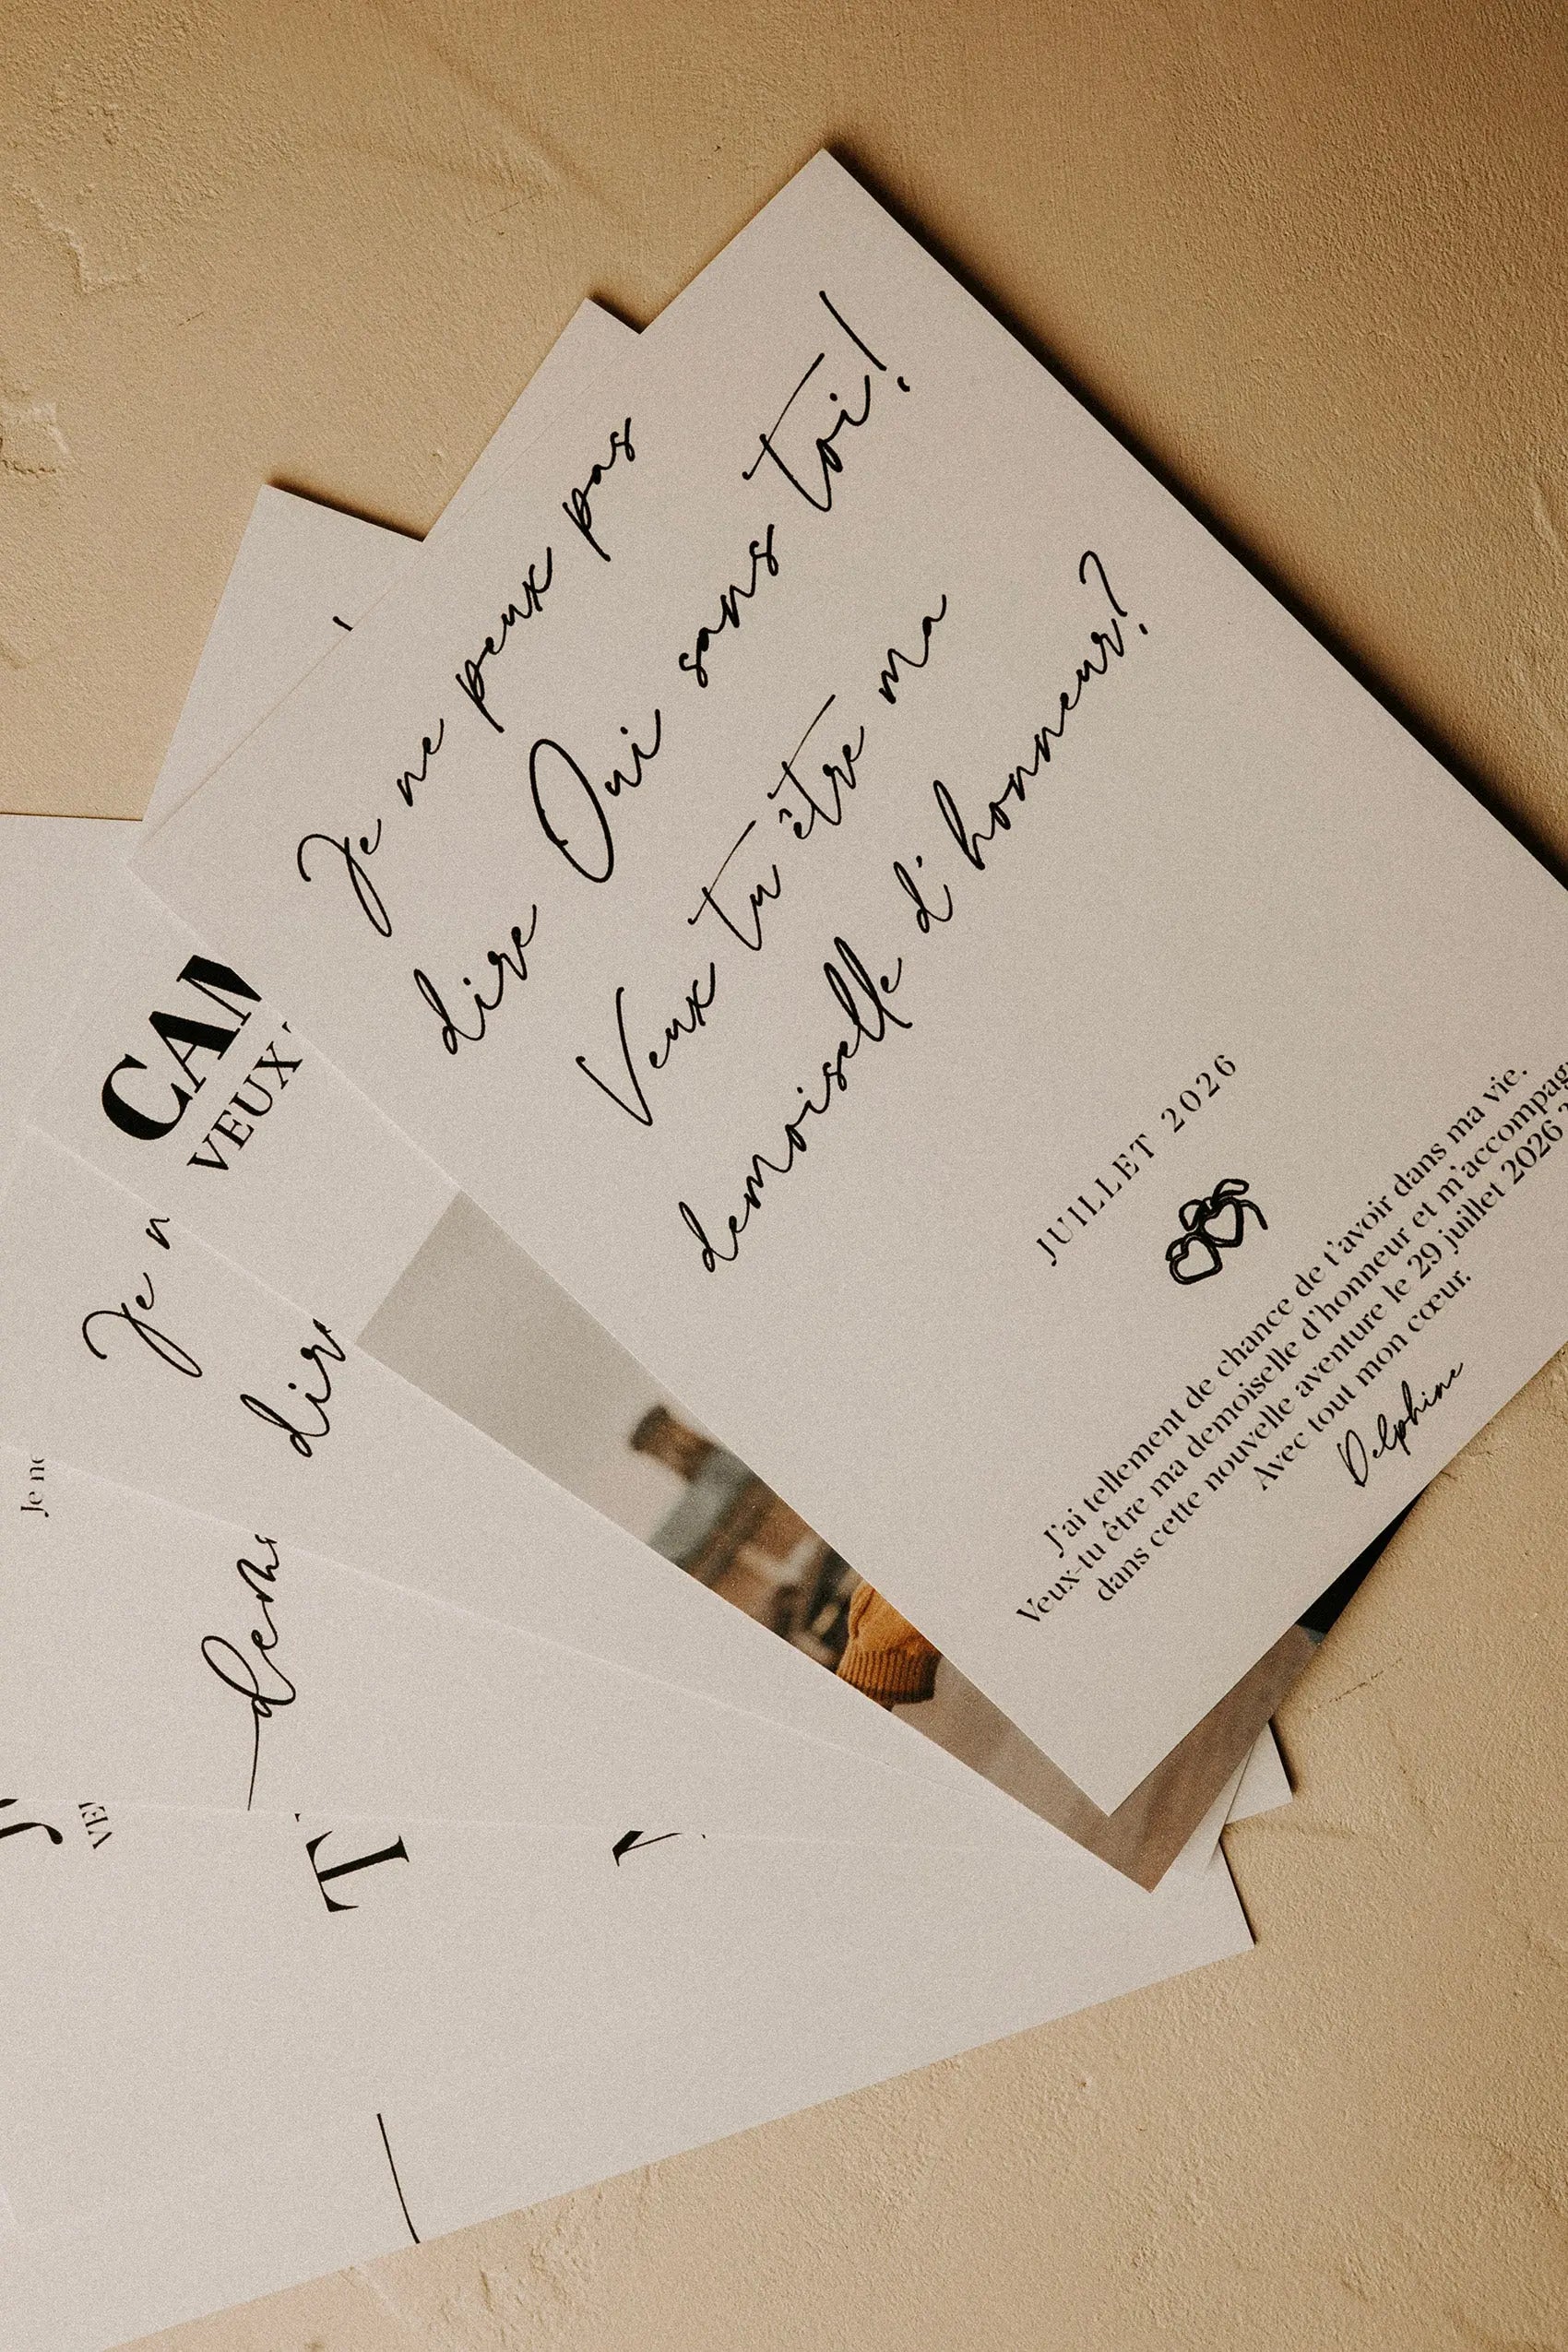 Je ne peux pas
dire Oui sans toi!
Veux tu être ma
demoiselle d'honneur?
JUILLET 2026
J'ai tellement de chance de t'avoir dans ma vie.
Veux-tu être ma demoiselle d'honneur et
dans cette nouvelle aventure le 29 juillet 2026
Avec tout mon cœur.
Delphine
VEUX
Je
Je